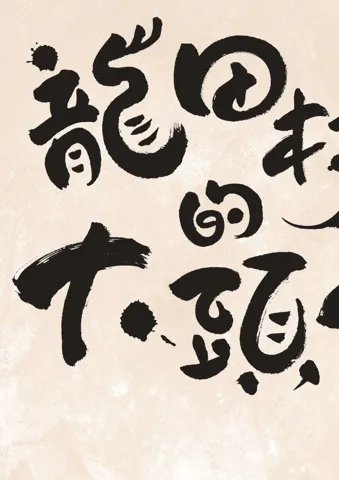 龍田
的
大頭